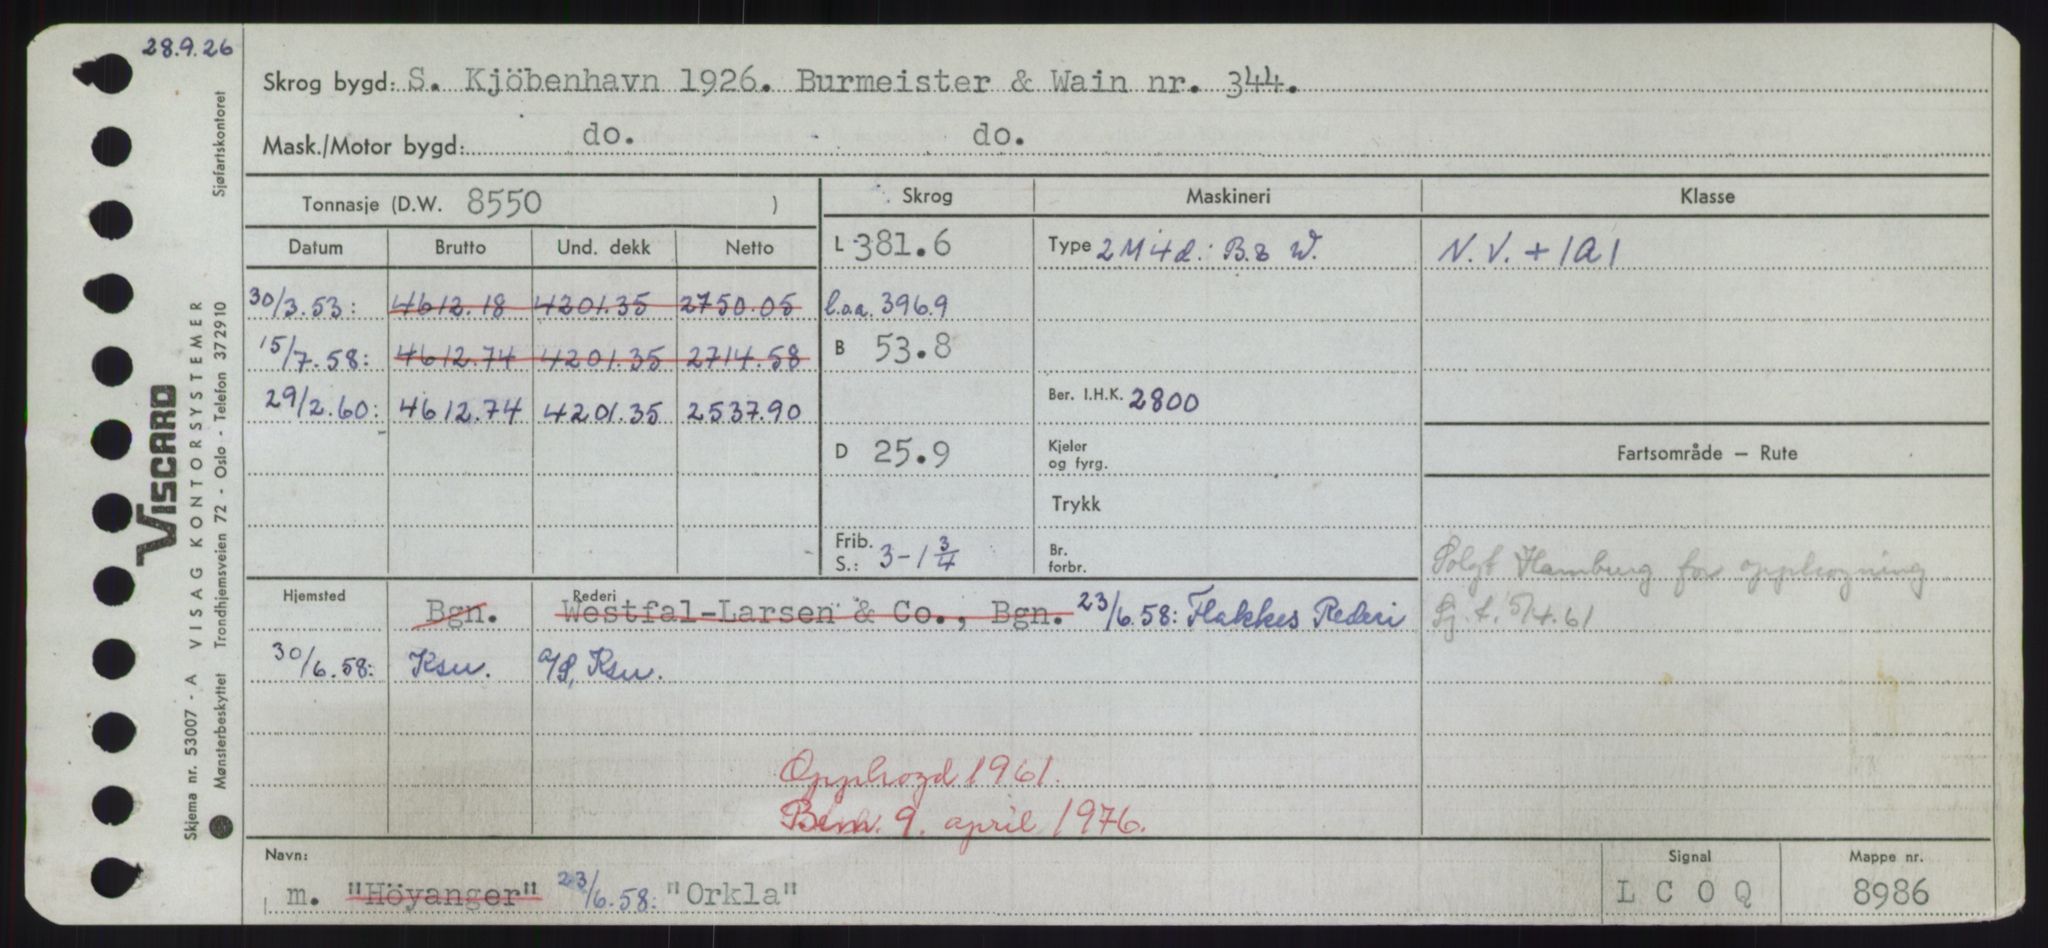 28.9.26
Skrog bygd: S. Kjöbenhavn 1926. Burmeister & Wain nr. 344.
Mask./Motor bygd: do. do.
Tonnasje (D.W. 8550 )
Skrog Maskineri Klasse
Datum Brutto Und. dekk Netto
L 381.6 Type 2 M 4 d. B. & W. N. V. + 1A1
30/3.53: 4612.18 4201.35 2750.05 l.o.a. 396.9
15/7.58: 4612.74 4201.35 2714.58 B 53.8
29/2.60: 4612.74 4201.35 2537.90 Ber. I.H.K. 2800
D 25.9 Kjeler og fyrg. Fartsområde – Rute
Trykk
Frib. S.: 3-1 3/4 Br. forbr.
Solgt Hamburg for opphogning
Hjemsted Bgn. Rederi Westfal-Larsen & Co., Bgn. 23/6.58: Flakkes Rederi
Sj. f. 5/4.61
30/6.58: Ksu. A/S, Ksu.
Opphogd 1961.
Bem. 9. april 1976.
Navn: m. "Höyanger" 23/6.58: "Orkla"
Signal L C O Q
Mappe nr. 8986
Sjøfartskontoret
VISCARD
VISAG KONTORSYSTEMER
Trondhjemsveien 72 - Oslo - Telefon 372910
Skjema nr. 53007 - A
Mønsterbeskyttet